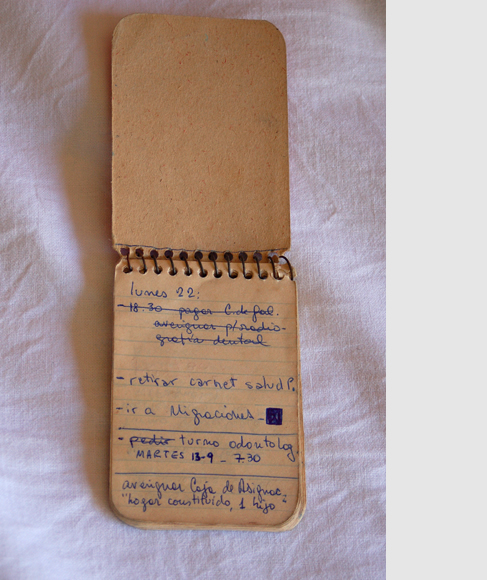 lunes 22:
- 18.30 pagar C. de fal.
averiguar p/radio-
grafía dental
- retirar carnet salud P.
- ir a Migraciones -
- pedir turno odontolog.
MARTES 13-9 - 730
averiguar Caja de Asignac.
"hogar constituido, 1 hijo